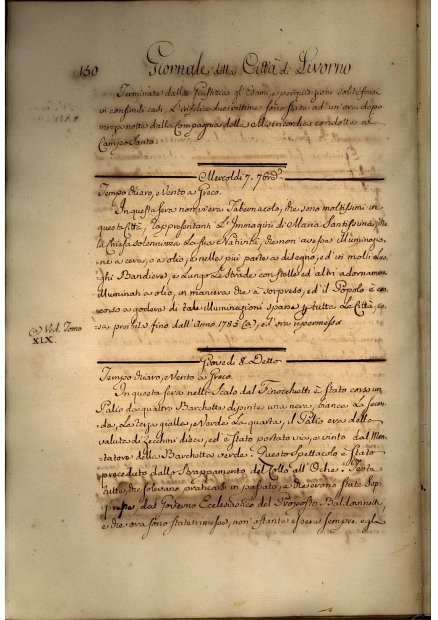 130 Giornale della Città di Livorno
Terminate dalla Giustizia gl'Esami, e perquisizione solite farsi
in consimili casi, L'infelice due vittime sono state ad un'ora dopo
mezza notte dalla Compagnia della Misericordia condotte al
Campo Santo.
Mercoldì 7. 7bre
Tempo chiaro, e Vento a Greco.
In questa sera non vi era Tabernacolo, che sono moltissimi in
questa Città, rappresentanti L'Immagini di Maria Santissima, che
la Chiesa solennizza La sua Natività, che non avesse illuminazio,
ne a cera, o a olio, e nella più parte a disegno, ed in molti Luo,
ghi Bandiere, e Lungo Le strade con stelle ed altri adornamen,
illuminati a olio, in maniera che à sorpreso, ed il Popolo è con,
corso a godere di tale illuminazioni sparse per tutta La Città, co,
sa proibita fino dall'anno 1785 (a), ed ora ripermessa
(a) Ved. Tomo
XIX.
Giovedì 8. Detto
Tempo chiaro, e Vento a Greco.
In questa sera nello Scalo dal Finocchetti è stato corso un
Palio da quattro Barchette dipinte una nera, bianca La secon,
da, La terza gialla, e Verde La quarta, il Palio era della
valuta di Zecchini dieci, ed è stato portato via, e vinto dal Mon,
tatore della Barchetta verde. Questo spettacolo è stato
preceduto dallo strappamento del Collo all'Oche. Feste
tutte, che solevano praticarsi in passato, e che erono state sop,
presse, dal Governo Ecclesiastico del Proposto Baldovinetti,
e che ora sono state rimesse, non ostante essere sempre egli